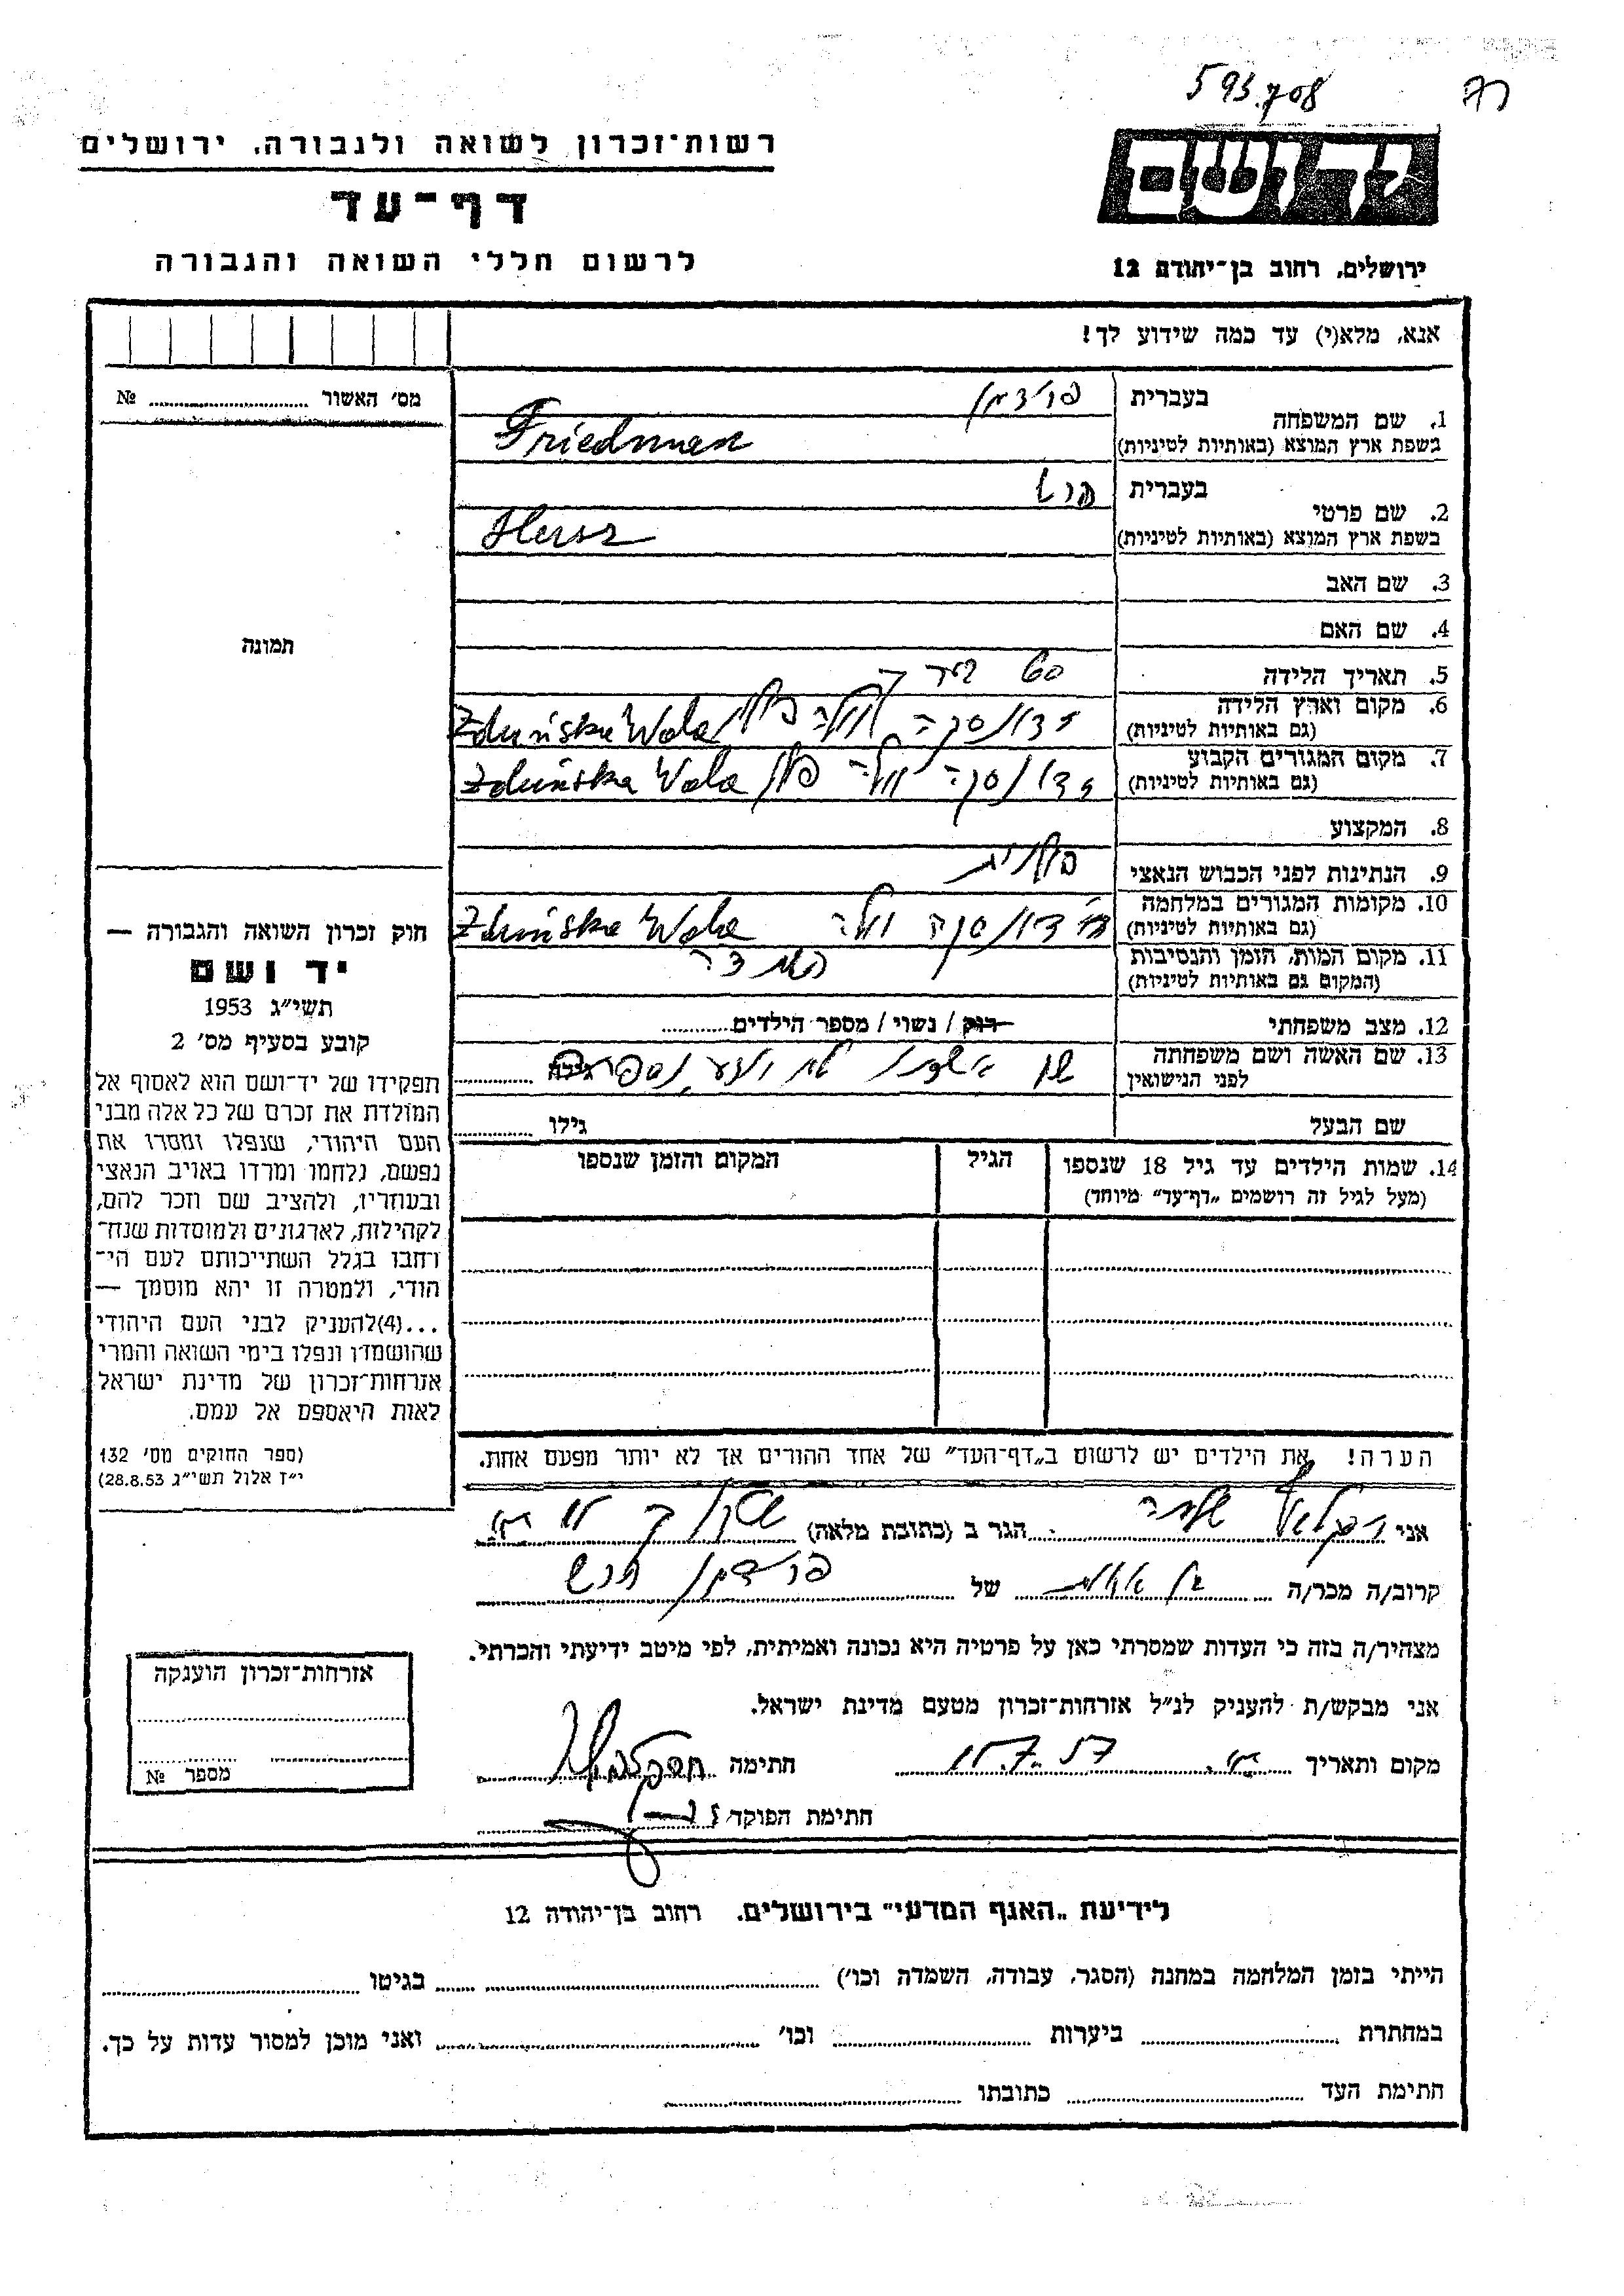 593708
רשות־זכרון לשואה ולגבורה, ירושלים
דף־עד
לרשום חללי השואה והגבורה
יד ושם
ירושלים, רחוב בן־יהודה 12
אנא, מלא(י) עד כמה שידוע לך!
מס' האשור № ........
תמונה
חוק זכרון השואה והגבורה —
יד ושם
תשי״ג 1953
קובע בסעיף מס׳ 2
תפקידו של יד־ושם הוא לאסוף אל
המולדת את זכרם של כל אלה מבני
העם היהודי, שנפלו ומסרו את
נפשם, נלחמו ומרדו באויב הנאצי
ובעוזריו, ולהציב שם וזכר להם,
לקהילות, לארגונים ולמוסדות שנח־
רחבו בגלל השתייכותם לעם הי־
הודי, ולמטרה זו יהא מוסמך —
...(4)להעניק לבני העם היהודי
שהושמדו ונפלו בימי השואה והמרי
אזרחות־זכרון של מדינת ישראל
לאות היאספם אל עמם.
(ספר החוקים מס׳ 132
י״ז אלול תשי״ג 28.8.53)
1. שם המשפחה בעברית פרידמן
בשפת ארץ המוצא (באותיות לטיניות) Friedman
2. שם פרטי בעברית הרש
בשפת ארץ המוצא (באותיות לטיניות) Hersz
3. שם האב
4. שם האם
5. תאריך הלידה 60
6. מקום וארץ הלידה (גם באותיות לטיניות) זדונסקה וולה פולין Zduńska Wola
7. מקום המגורים הקבוע (גם באותיות לטיניות) זדונסקה וולה פולין Zduńska Wola
8. המקצוע
9. הנתינות לפני הכבוש הנאצי פולנית
10. מקומות המגורים במלחמה (גם באותיות לטיניות) זדונסקה וולה Zduńska Wola
11. מקום המות, הזמן והנסיבות (המקום גם באותיות לטיניות)
12. מצב משפחתי רוק / נשוי / מספר הילדים........
13. שם האשה ושם משפחתה לפני הנישואין שם אשתו לא ידוע נספתה גילה
שם הבעל גילו ........
14. שמות הילדים עד גיל 18 שנספו הגיל המקום והזמן שנספו
(מעל לגיל זה רושמים „דף־עד״ מיוחד)
הערה! את הילדים יש לרשום ב„דף־העד״ של אחד ההורים אך לא יותר מפעם אחת.
אני הגר ב (כתובת מלאה)
קרוב/ה מכר/ה של פרידמן הרש
מצהיר/ה בזה כי העדות שמסרתי כאן על פרטיה היא נכונה ואמיתית, לפי מיטב ידיעתי והכרתי.
אני מבקש/ת להעניק לנ״ל אזרחות־זכרון מטעם מדינת ישראל.
מקום ותאריך חתימה
חתימת הפוקד
אזרחות־זכרון הוענקה
מספר №
לידיעת „האגף המדעי״ בירושלים. רחוב בן־יהודה 12
הייתי בזמן המלחמה במחנה (הסגר, עבודה, השמדה וכו׳) ........ בגיטו ........
במחתרת ........ ביערות ........ וכו׳ ........ ואני מוכן למסור עדות על כך.
חתימת העד ........ כתובתו ........